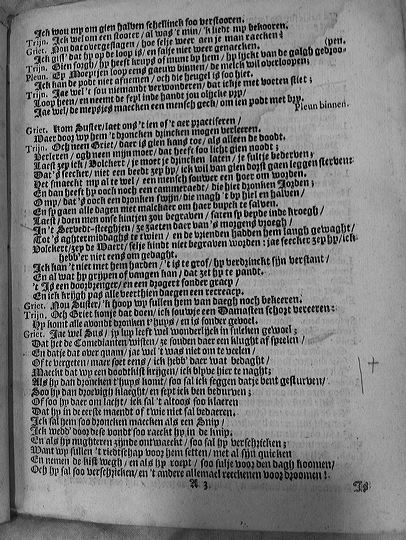 Ick wou my om gien halven schellinck soo verstooren.
Trijn. Ick wel om een stooter / al was 't min / 'k liedt mp bekooren.
Griet. Nou dat overgeslagen / hoe selje weer aen je man raecken?
Ick gis' dat hy op de loop is / en salje niet weer genaecken. (pen.
Trijn. Gien sorgh / hy heeft kruys of munt by hem / hy lijckt van de galgh gedroo-
Pleun. Ey Moeptjen loop eens gaeuw binnen / de melck wil overloopen;
Ick kan de podt niet afneemen / och die heugel is soo hiet.
Trijn. Jae wel 't sou niemandt verwonderen / dat ickje met voeten stiet;
Loop heen / en neemt de sepl inde handt jou olijcke prp/
Jae wel / de meysjes maecken een mensch geck / om ien podt met bry.
Pleun binnen.
Griet. Kom Suster / laet ons 't ien of 't aer practiseren /
Waer door wy hem 't droncken drincken mogen verleeren.
Trijn. Och neen Griet / daer is gien kans toe / als alleen de doodt.
Verleren / ogh neen mijn moer / dat heeft soo licht gien noodt;
Laest zep ick / Volckert / je moet je drincken laten / je sulje bederven /
Dat 's seecker / niet een beedt zey hy / ick wil van gien dorst gaen leggen sterven:
Het smaeckt mp al te wel / een mensch souwer een hoer om worden.
En dan heeft hy oock noch een cammeraedt / die hiet droncken Jorden;
O mp / dat 's oock een droncken swijn / die magh 't by hiel en halven /
En sy gaen alle dagen niet malckaer om haer buyck te salven.
Laest / doen men onse kuntjen sou begraven / saten sy beyde inde kroegh /
In 't Servedt-steeghjen / ze zaeten daer van 's morgens vroegh /
Tot 's aghtermiddaghs te twien / en de vrienden hadden hem langh gewaght /
Volckert / zey de Waert / selje kindt niet begraven worden : jae seecker zep hy / ick
hebb'er niet eens om gedaght.
Ick kan 't niet met hem harden / 't is te grof / hy verdrinckt sijn verstant /
En al wat hy grijpen of vangen kan / dat zet hy te pandt.
't Is een doorbrenger / en een dragert sonder gracy /
En ick krijgh pas alle veerthien dagen een recreacy.
Griet. Nou Suster / 'k hoop wy sullen hem van daegh noch bekeeren.
Trijn. Och Griet konje dat doen / ick souwje een Damasten schort vereeren:
Hy komt alle avondt droncken t'huys / en is sonder gevoel.
Griet. Jae wel Sus / jy sup leeft wel wonderlijck in sulcken gewoel;
Dat het de Comedianten wisten / ze sonden daer een klught af speelen /
En datje dat over quam / jae wel 't was niet om te veelen /
Of te vergeten / maer soet eens / ick hebb' daer wat bedaght /
Maeckt dat wy een doodtkist krijgen / ick blijve hier te naght;
Als hy dan droncken t'huys komt / soo sal ick seggen datje bent gesturven /
Soo hy dan droevigh klaeght / en seyt ick ben bedurven;
Of soo hy daer om lacht / ick sal 't altoos soo klaeren
Dat hy in de eerste maendt of twie niet sal bedaeren.
Ick sal hem soo droncken maecken als een Snip /
Ick wedd' door dese vondt soo raeckt hy in de knip.
En als hy nughteren zijnde ontwaeckt / soo sal hy verschricken;
Want wy sullen 't riedtschap voor hem setten / met al sijn quicken
En nemen de kist wegh / en als hy roept / soo sulje voor den dagh koomen /
Och hy sal soo verschricken / en 't andere allemael reeckenen voor droomen!
A 3. Is